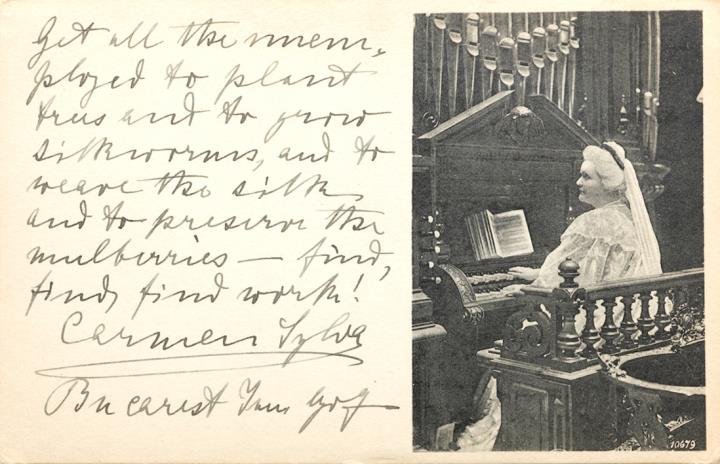 Get all the unem,
ployed to plant
trees and to grow
silkworms, and to
weave the silk
and to preserve the
mulberries — find,
find, find work!
Carmen Sylva
Bucarest
10679